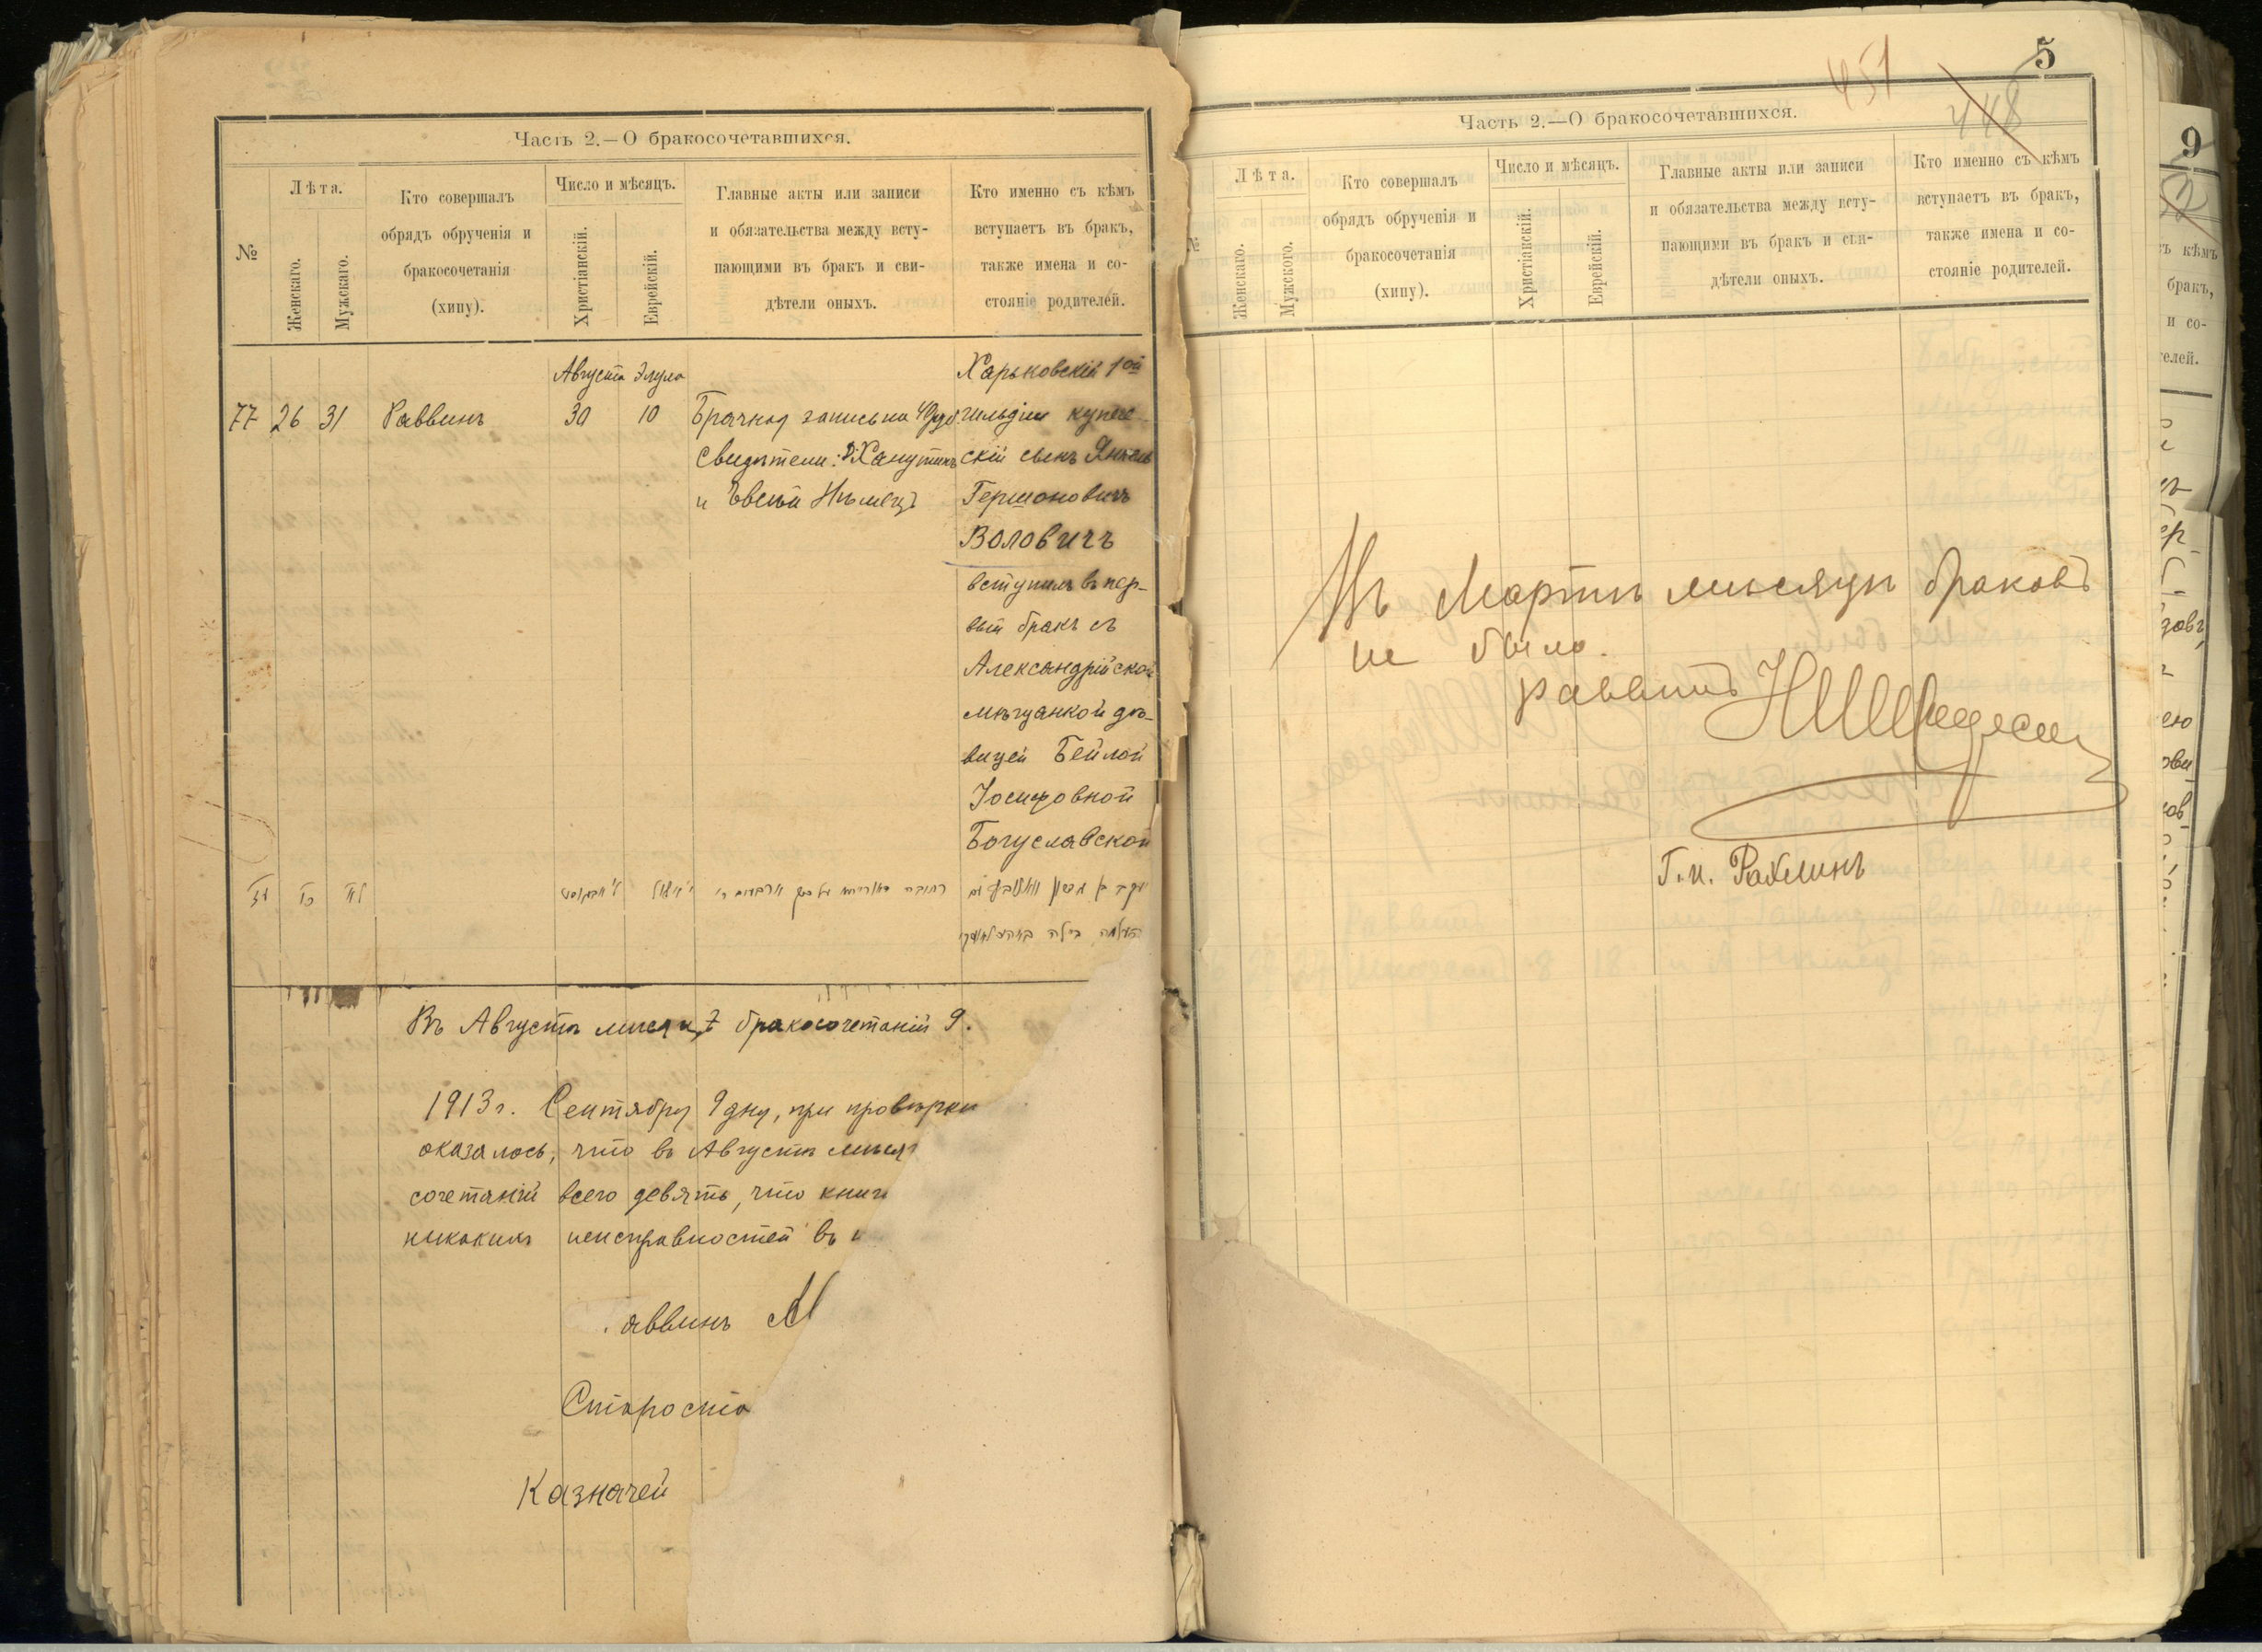 Часть 2.—О бракосочетавшихся.
№
Лѣта.
Женскаго.
Мужскаго.
Кто совершалъ
обрядъ обрученія и
бракосочетанія
(хипу).
Число и мѣсяцъ.
Христіанскій.
Еврейскій.
Главные акты или записи
и обязательства между всту-
пающими въ бракъ и сви-
дѣтели оныхъ.
Кто именно съ кѣмъ
вступаетъ въ бракъ,
также имена и со-
стояніе родителей.
Августа Элула
77 26 31 Раввинъ 30 10 Брачная запись на
Свидѣтели: Ханутинъ
и Евсѣй Нѣмецъ
Харьковскій 1ой
гильдіи купече-
скій сынъ Янкель
Гершоновичъ
Воловичъ
вступилъ въ пер-
вый бракъ съ
Александрійской
мѣщанкой дѣ-
вицей Бейлой
Іосифовной
Богуславской
Въ Августѣ мѣсяцѣ бракосочетаній 9.
1913 г. Сентября 9 дня, при провѣрки
оказалось, что въ Августѣ мѣсяц
сочетаній всего девять, что книг
никакихъ неисправностей въ
аввинъ М
Староста
Казначей
5
451
448
Часть 2.—О бракосочетавшихся.
№
Лѣта.
Женскаго.
Мужского.
Кто совершалъ
обрядъ обрученія и
бракосочетанія
(хипу).
Число и мѣсяцъ.
Христіанскій.
Еврейскій.
Главные акты или записи
и обязательства между всту-
пающими въ бракъ и сви-
дѣтели оныхъ.
Кто именно съ кѣмъ
вступаетъ въ бракъ,
также имена и со-
стояніе родителей.
Въ Мартѣ мѣсяцѣ браковъ
не было.
раввинъ
Г. И. Рахлинъ
9
ъ кѣмъ
бракъ,
и со-
телей.